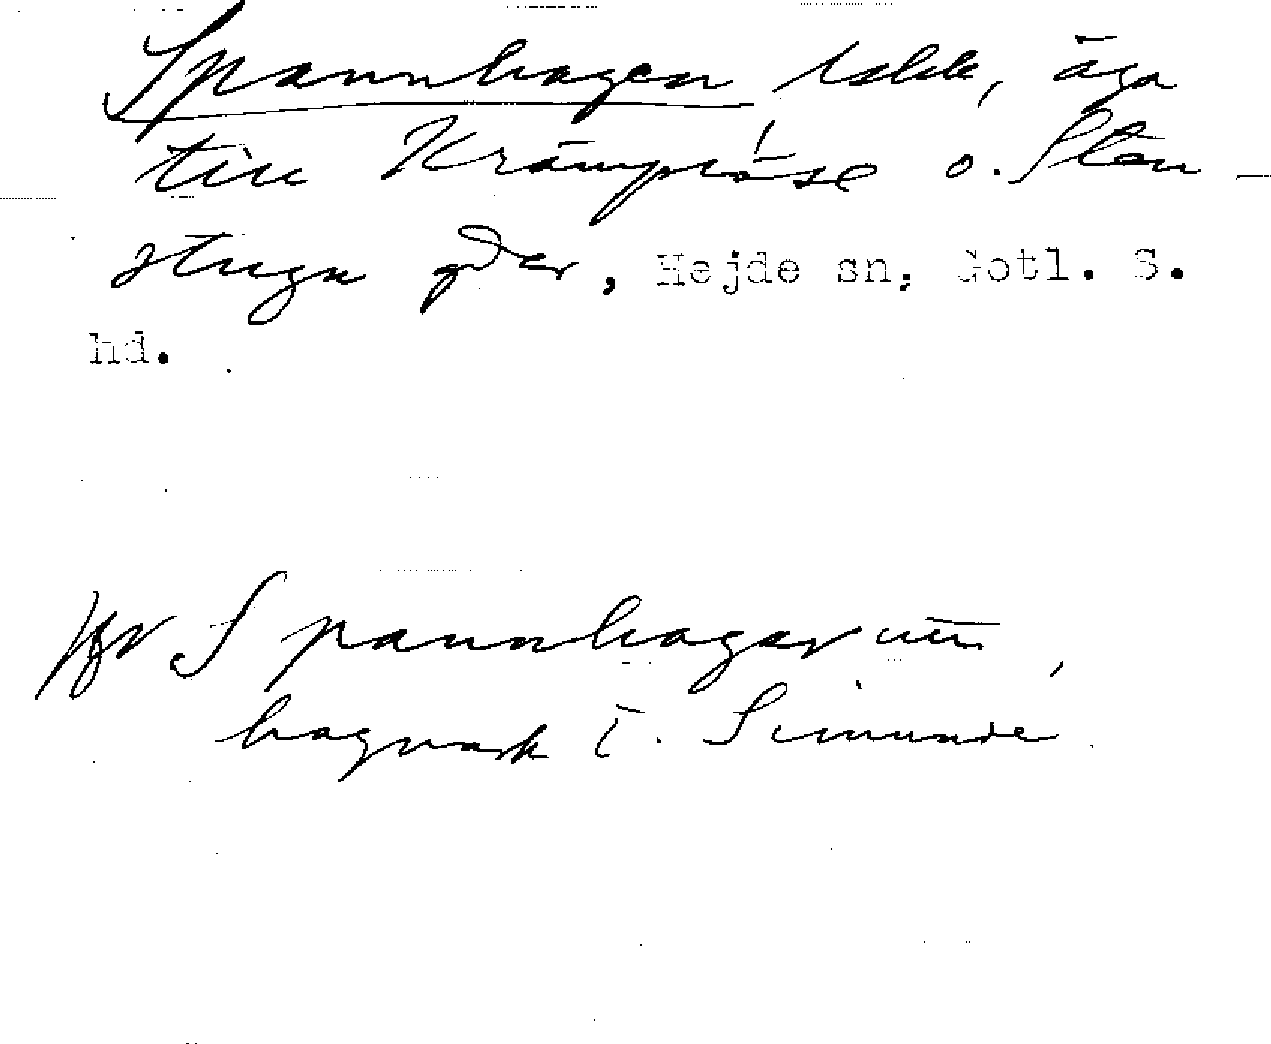 Spannhagen
till Krämpröse o. Sten-
stuga gdar, Hejde sn, Gotl. S.
hd.
Jfr Spannhagen
hagmark i Simunde